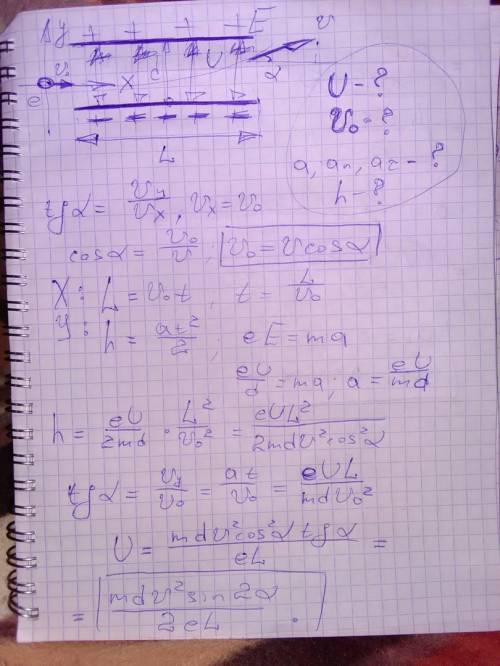 Δy + + + + E v
v₀ X d U α
e
- - - - -
L
U - ?
v₀ - ?
a, aₙ, aτ - ?
h - ?
tgα = vy/vx, vx = v₀
cosα = v₀/v ; v₀ = v cosα
X: L = v₀t , t = L/v₀
Y: h = at²/2 ; eE = ma
eU/d = ma; a = eU/md
h = eU/2md · L²/v₀² = eUL²/2mdv²cos²α
tgα = vy/v₀ = at/v₀ = eUL/mdv₀²
U = mdv²cos²α tgα/eL =
= mdv²sin2α/2eL .